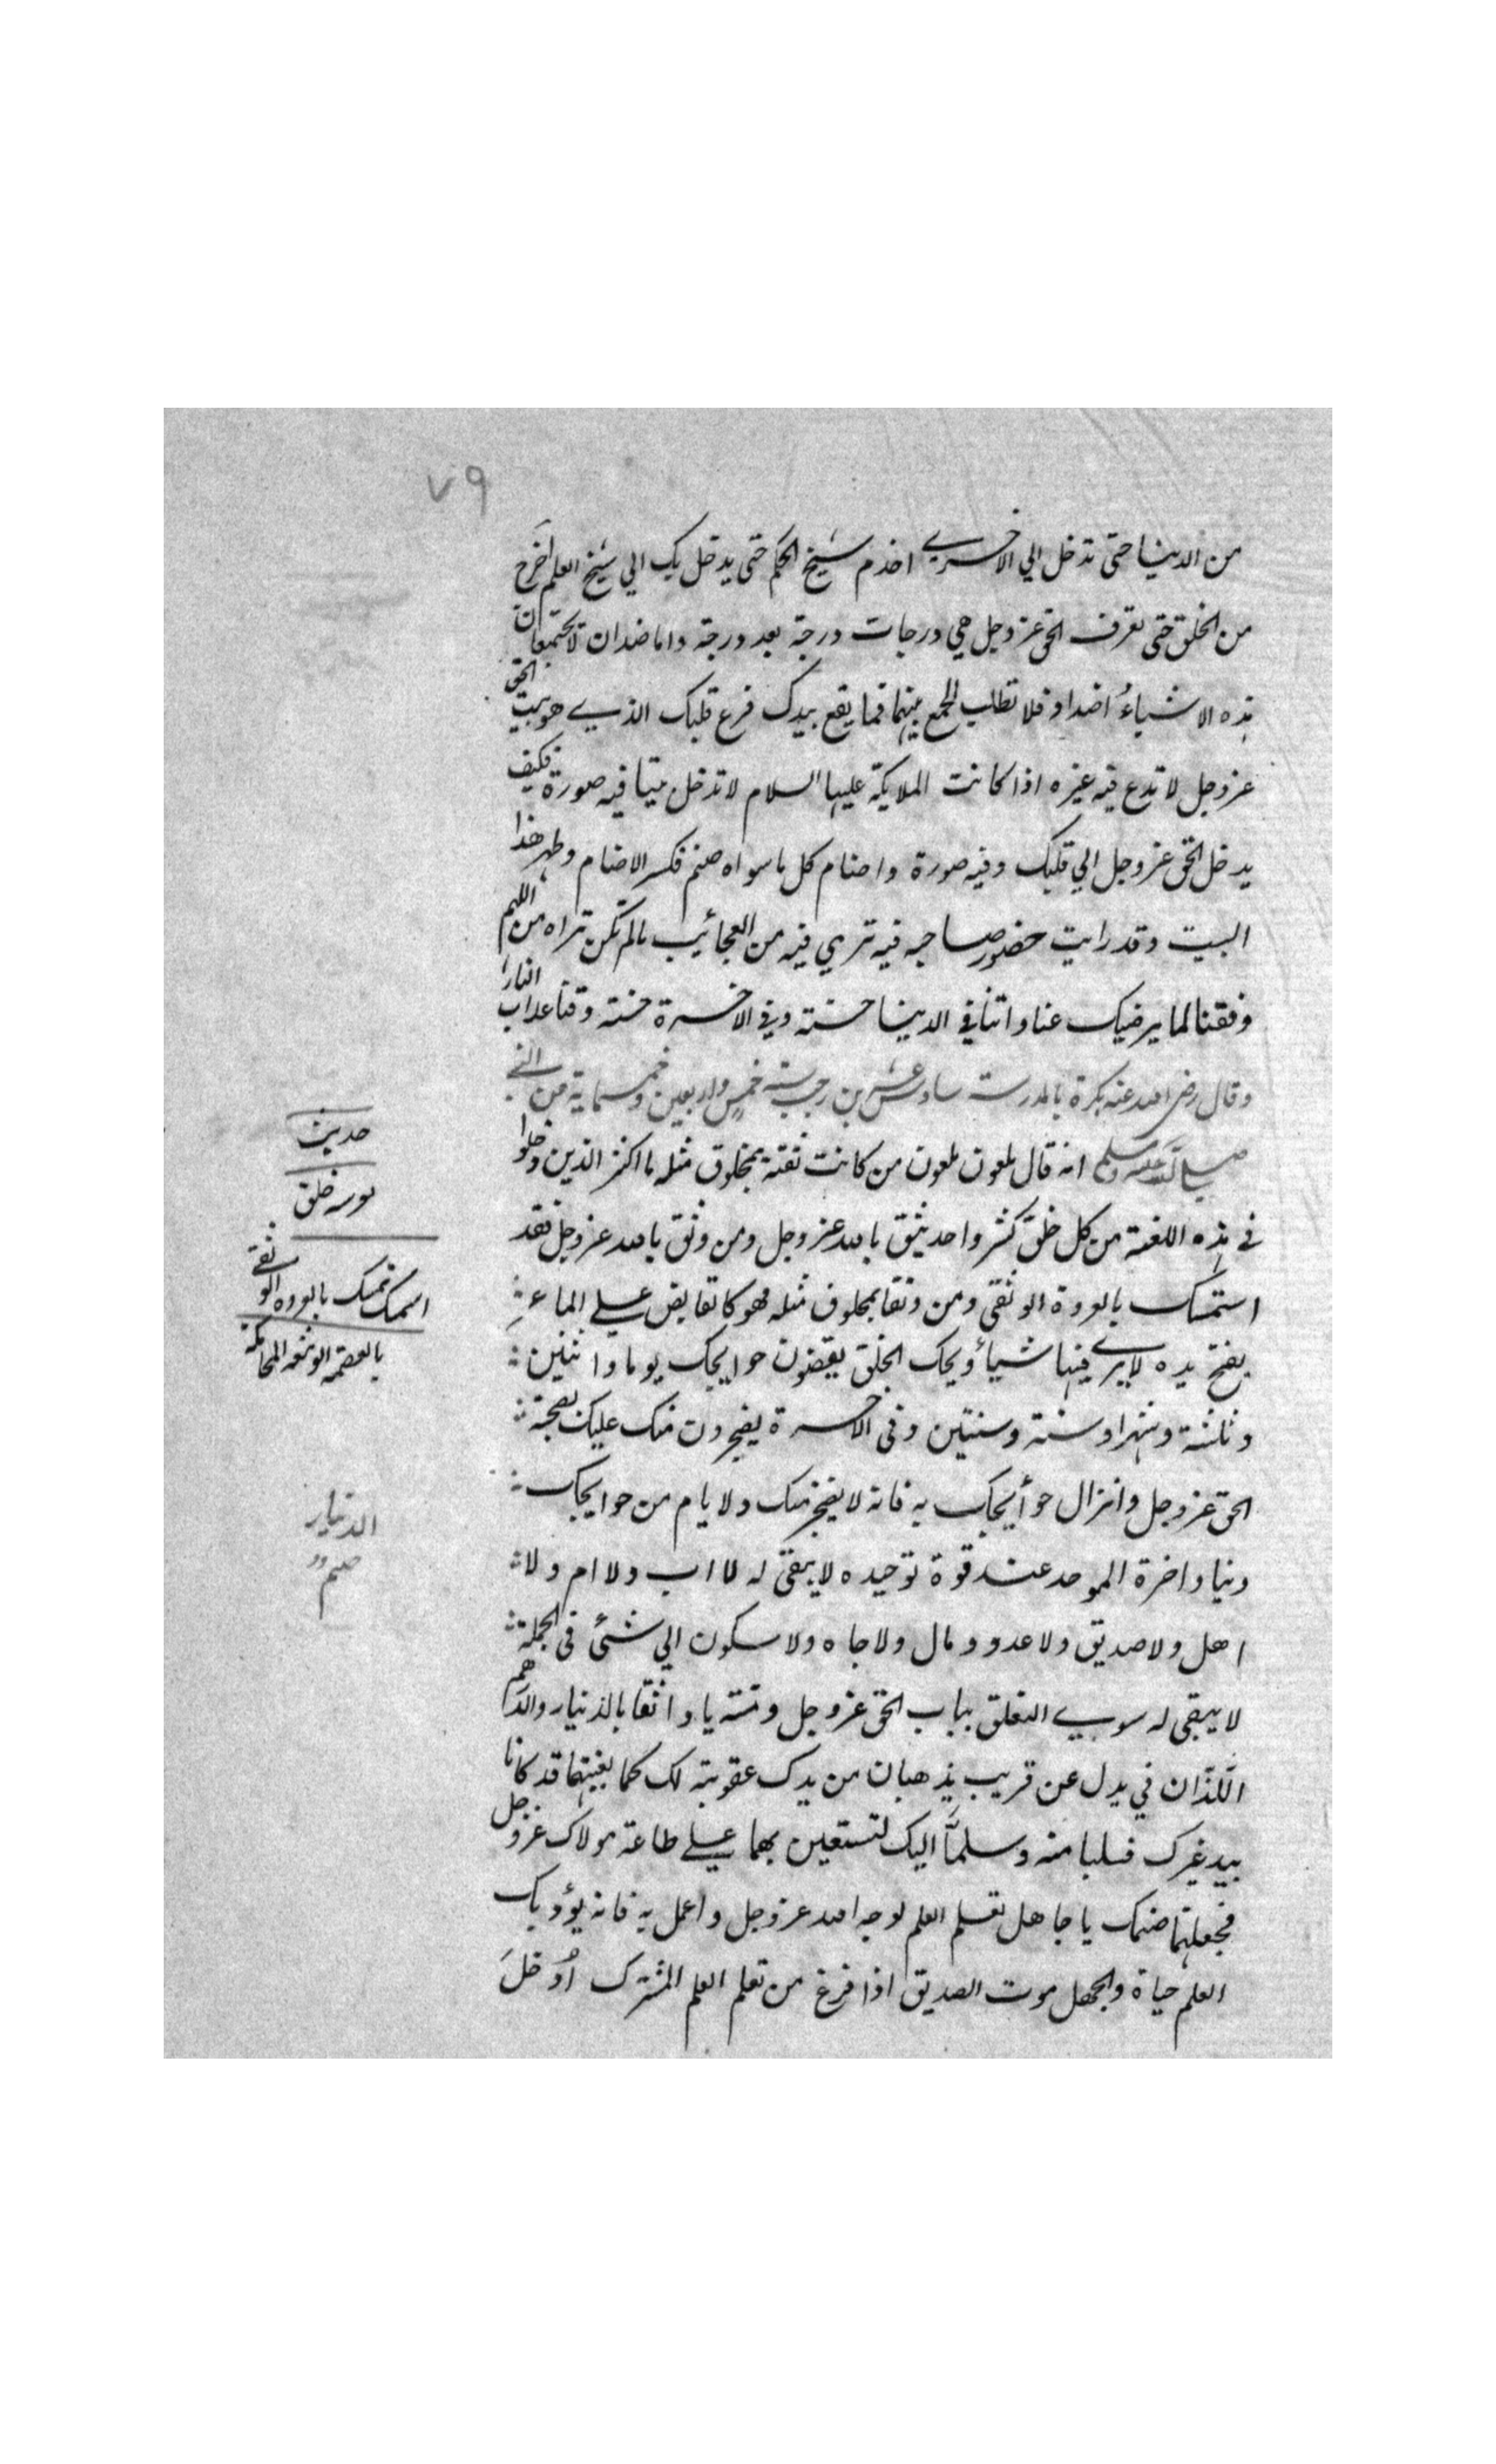 ٧٩
من الدنيا حتى تدخل الي الاخري اخدم شيخ الحكم حتى يدخل بك الي شيخ العلم اخرج
من الخلق حتى تعرف الحق عز وجل هي درجات درجة بعد درجة واما ضدان لا يجتمعان
هذه الاشياء اضداد فلا تطلب الجمع بينهما فما يقع بيدك فرغ قلبك الذي هو بيت الحق
عز وجل لا تدع فيه غيره اذا كانت الملايكة عليها السلام لا تدخل بيتا فيه صورة فكيف
يدخل الحق عز وجل الي قلبك وفيه صورة واصنام كل ما سواه صنم فكسر الاصنام وطهر هذا
البيت وقد رايت حضور صاحبه فيه تري فيه من العجائب ما لم تكن تراه من اللهم
وفقنا لما يرضيك عنا واتنا في الدنيا حسنة وفي الاخرة حسنة وقنا عذاب النار
وقال رضي الله عنه بكرة بالمدرسة سادس عشرين رجب سنة خمس واربعين وخمسماية عن النبي
صلي الله عليه وسلم انه قال ملعون ملعون من كانت ثقته بمخلوق مثله ما اكثر الذين دخلوا
في هذه اللعنة من كل خلق كثير واحد يثق بالله عز وجل ومن وثق بالله عز وجل فقد
استمسك بالعروة الوثقى ومن وثق بمخلوق مثله فهو كالقابض علي الماء
يفتح يده لا يري فيها شيأ ويحك الخلق يقضون حوايجك يوما واثنين
وثلثة وشهرا وسنة وسنتين وفى الاخرة يضجرون منك عليك بصحبة
الحق عز وجل وانزال حوأيجك به فانه لا يضجر منك ولا يام من حوايجك
دنيا واخرة الموحد عند قوة توحيده لا يبقى له لا اب ولا ام ولا
اهل ولا صديق ولا عدو ومال ولا جاه ولا سكون الي شئ فى الجملة
لا يبقى له سوي التعلق بباب الحق عز وجل ومنته يا واثقا بالدنيار والدراهم
اللذان في يدك عن قريب يذهبان من يدك عقوبة لك كما بغيتهما قد كانا
بيد غيرك فسلبا منه وسلما اليك لتستعين بهما علي طاعة مولاك عز وجل
فجعلتهما صنمك يا جاهل تعلم العلم لوجه الله عز وجل واعمل به فانه يؤدبك
العلم حياة والجهل موت الصديق اذا فرغ من تعلم العلم المشترك أدخل
حديث
استمسك تمسك بالعروه الوثقى
بالعصمه الوثيقه المحكمة
الدنيار
صنم